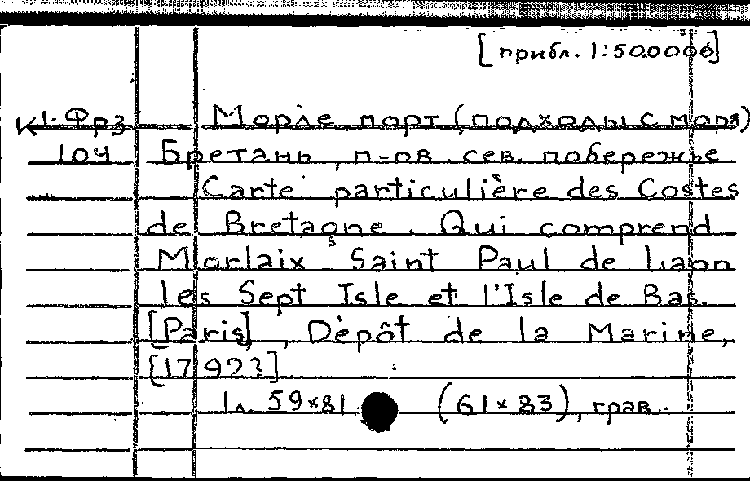 [прибл. 1:50.000]
К 1-Фрз Морле порт (подходы с моря)
104 Бретань, п-ов. сев. побережье
Carte particulière des Costes
de Bretagne. Qui comprend
Morlaix, Saint Paul de Laon
les Sept Isle et l'Isle de Bas.
[Paris], Dépôt de la Marine,
[1792?]
1л. 59×81 (61×83), грав.